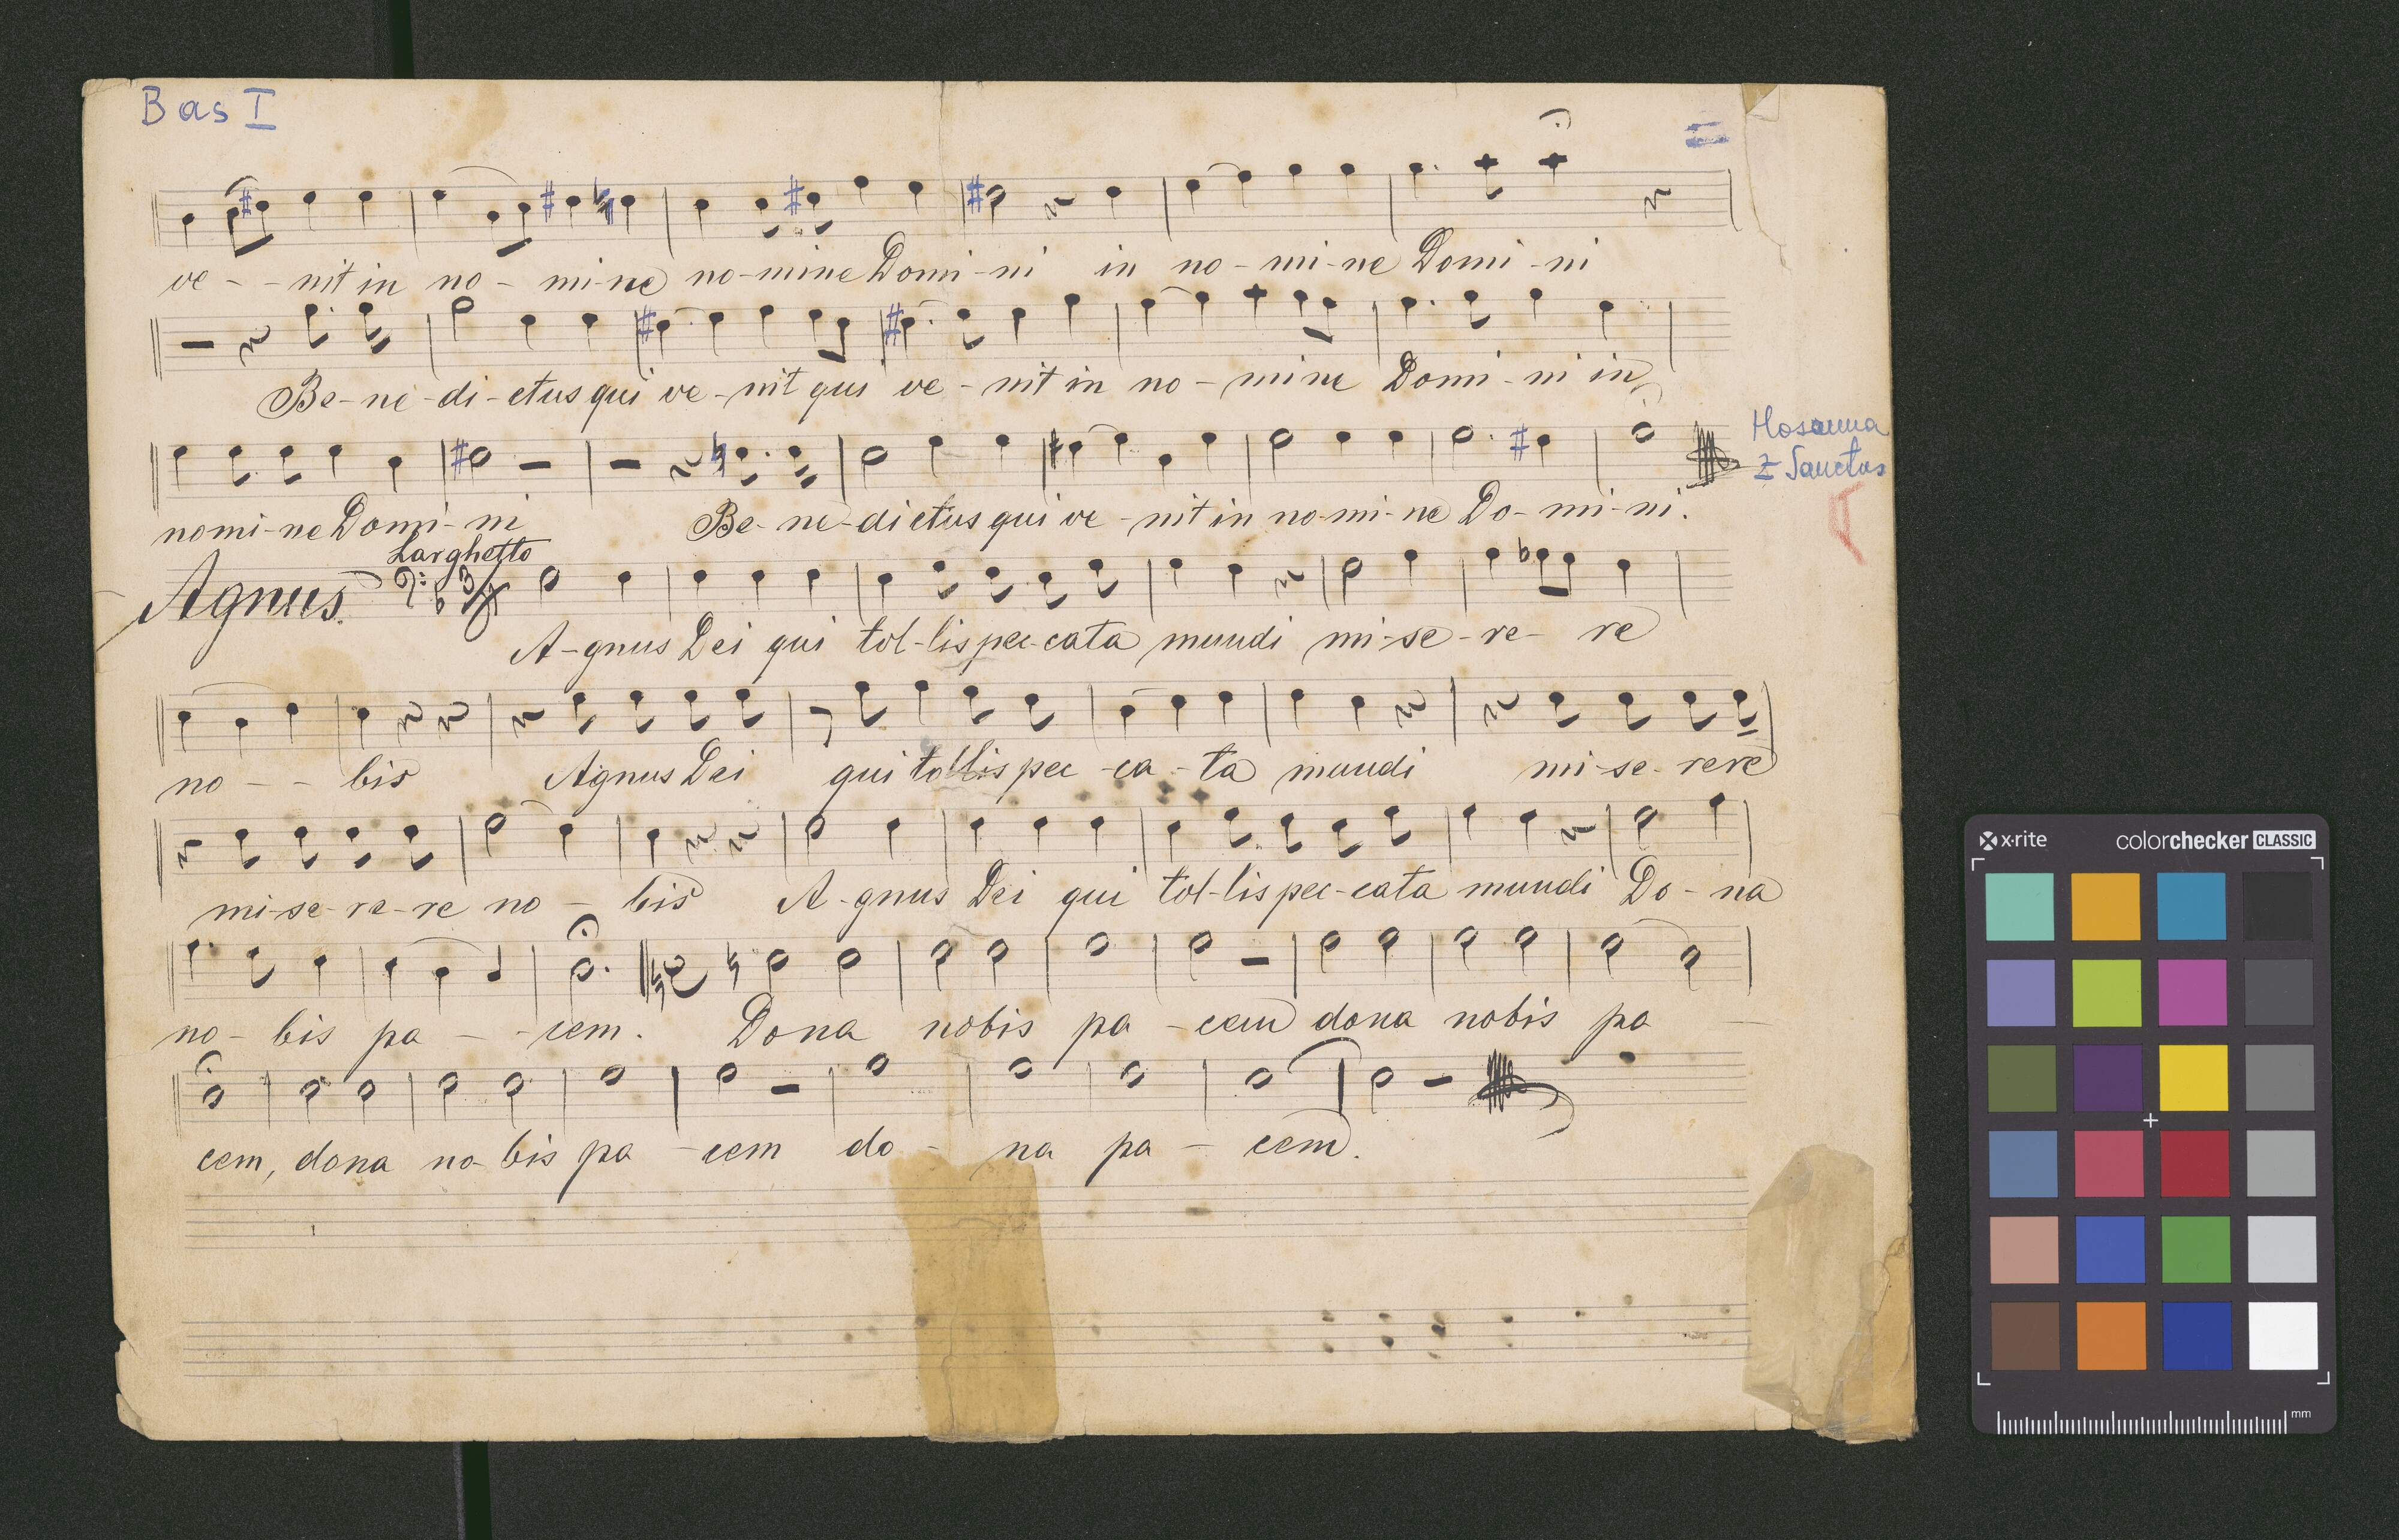 Bas I
ve - - nit in no - mi-ne no-mine Domi-ni in no-mi-ne Domi-ni
Be-ne-di-ctus qui ve-nit qui ve-nit in no-mine Domi-ni in
nomi-ne Domi-ni Be-ne-dictus qui ve-nit in no-mi-ne Do-mi-ni.
Hosanna
z Sanctus
Larghetto
Agnus. 3/4
A-gnus Dei qui tol-lis pec-cata mundi mi-se-re- re
no - - bis Agnus Dei qui tollis pec-ca-ta mundi mi-se-rere
mi-se-re-re no - bis A-gnus Dei qui tol-lis pec-cata mundi Do-na
no-bis pa - -cem. Dona nobis pa-cem dona nobis pa
cem, dona no-bis pa-cem do - na pa - cem.
x·rite colorchecker CLASSIC
mm